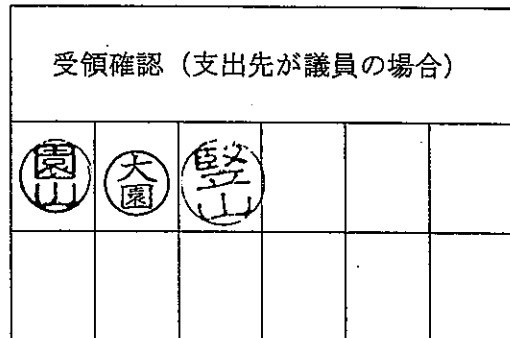 受領確認（支出先が議員の場合）
園山 大園 竪山